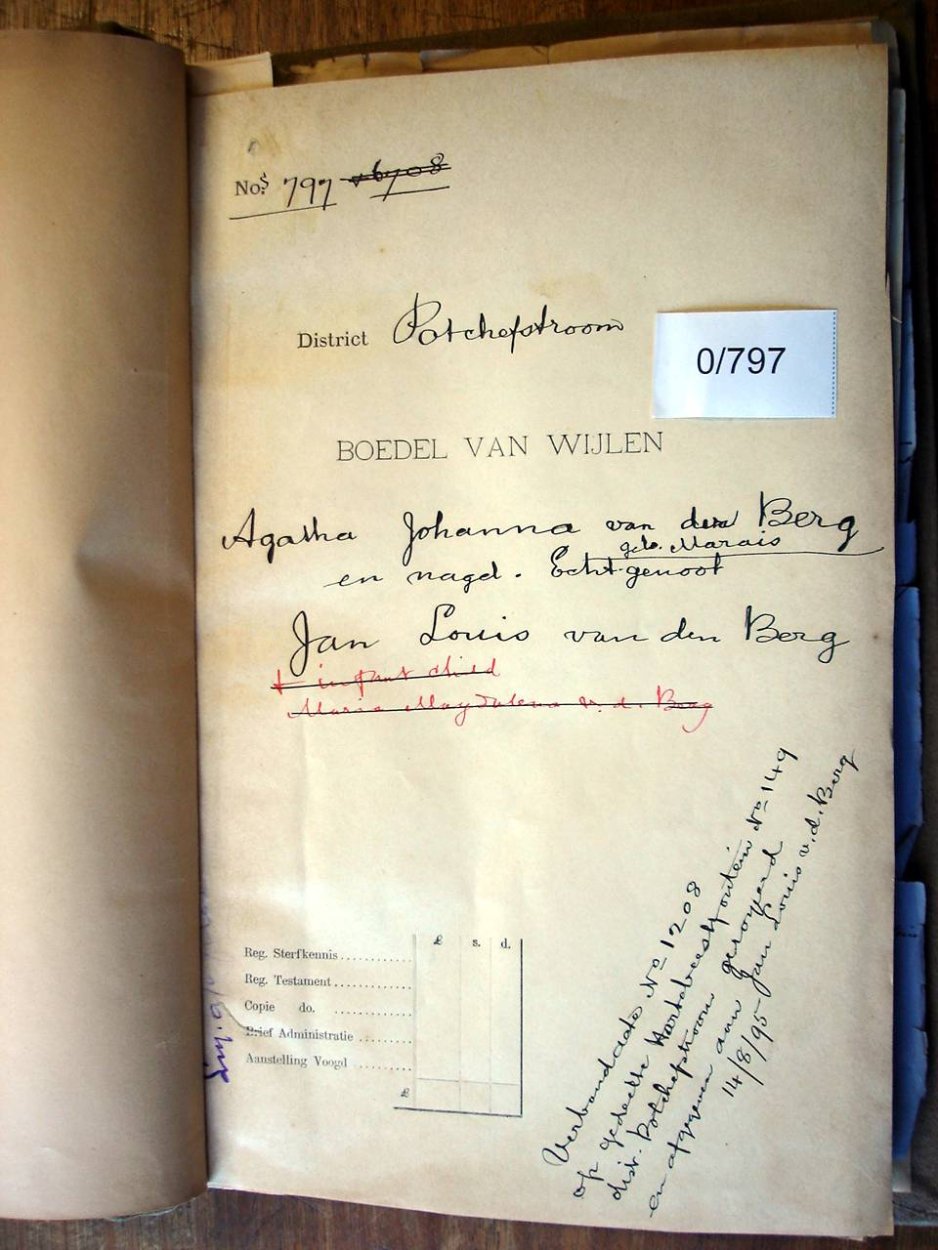 No.s 797 v 6708
District Potchefstroom
0/797
BOEDEL VAN WIJLEN
Agatha Johanna van den Berg
geb. Marais
en nagel. Echtgenoot
Jan Louis van den Berg
+ infant child
Maria Magdalena v. d. Berg
£ s. d.
Reg. Sterfkennis
Reg. Testament
Copie do.
Brief Administratie
Aanstelling Voogd
£
Verbandacte No 1208
op gedeelte Hartebeestfontein No 149
dist. Potchefstroom geroyeerd
en afgegeven aan Jan Louis v. d. Berg
14/8/95